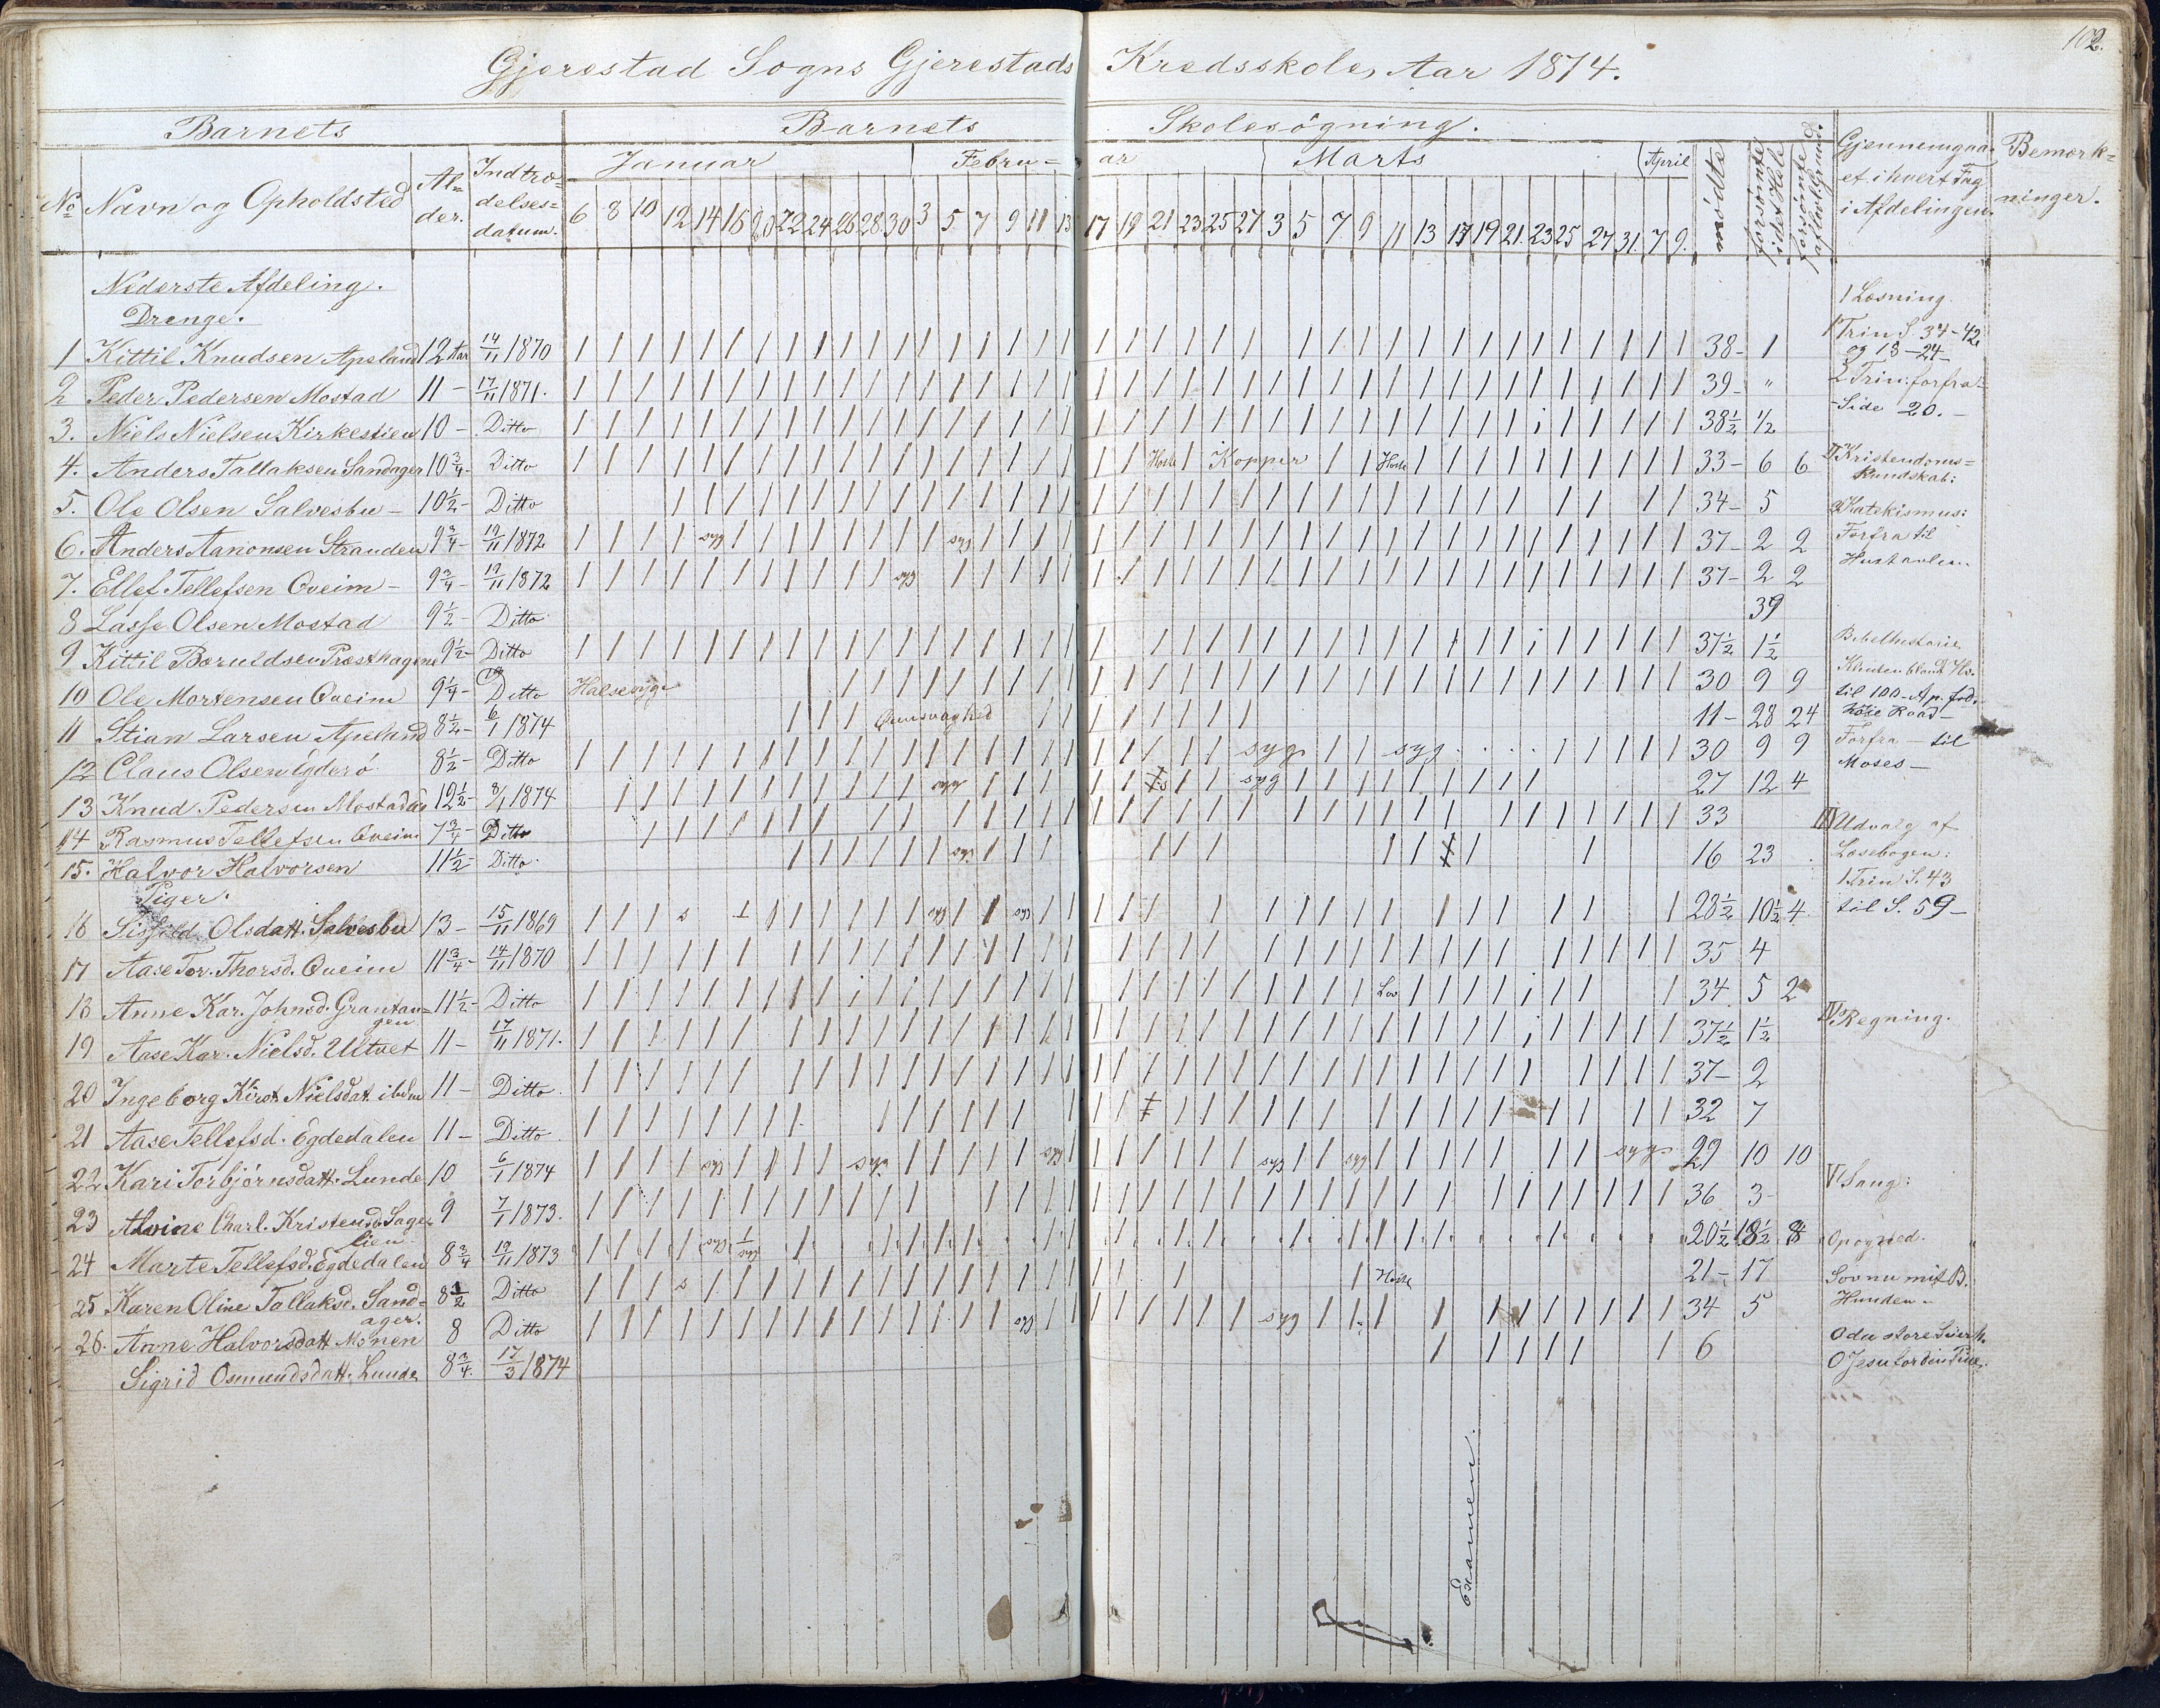 102.
Gjerestad Sogns Gjerestads Kredsskole, Aar 1874.
Barnets Barnets Skolesøgning.
No Navn og Opholdsted Al=der. Indtræ=delses=datum. Januar Febru=ar Marts April mødte forsømte i det Hele forsømte af lovl. Grund. Gjennemgaaet i hvert Fag i Afdelingen. Bemærk=ninger.
6 8 10 12 14 16 20 22 24 26 28 30 3 5 7 9 11 13 17 19 21 23 25 27 3 5 7 9 11 13 17 19 21 23 25 27 31 7 9.
Nederste Afdeling.
Drenge.
1 Kittil Knudsen Apeland 12 Aar 14/11 1870 38- 1
2 Peder Pedersen Mostad 11 - 17/11 1871. 39- "
3. Niels Nielsen Kirkestien 10 - Ditto 38½ ½
4. Anders Tallaksen Sandager 10¾- Ditto Hoste Kopper Hoste 33- 6 6
5. Ole Olsen Salvesbu - 10½- Ditto 34- 5
6. Anders Aanonsen Stranden 9¾- 19/11 1872 syg syg 37- 2 2
7. Ellef Tellefsen Qveim - 9¾- 19/11 1872 syg 37- 2 2
8 Lasse Olsen Mostad 9½- Ditto 39
9 Kittil Bæruldsen Præsthagen 9½- Ditto 37½ 1½
10 Ole Mortensen Qveim 9¼- Ditto Halsesyge 30 9 9
11 Stian Larsen Apeland 8½- 6/1 1874 11- 28 24
12 Claus Olsen Egderø 8½- Ditto syg syg 30 9 9
13 Knud Pedersen Mostad 12½- 8/1 1874 syg syg 27 12 4
14 Rasmus Tellefsen Qveim 7¾- Ditto 33
15. Halvor Halvorsen 11½- Ditto. syg 16 23
Piger.
16 Olsdatt. Salvesbu 13- 15/11 1869 s syg syg 28½ 10½ 4.
17 Aase Tor. Thorsd. Qveim 11¾- 14/11 1870 35 4
18 Anne Kar. Johnsd. Grantan=gen 11½- Ditto Lov 34 5 2
19 Aase Kar. Nielsd. Ultvet 11- 17/11 1871. 37½ 1½
20 Ingeborg Kirst. Nielsdat. ibdm 11- Ditto. 37- 2
21 Aase Tellefsd. Egdedalen 11- Ditto. 32 7
22 Kari Torbjørnsdatt. Lunde 10 6/1 1874 syg syg syg syg syg syg 29 10 10
23 Alvine Charl. Kristensd. Sage=lien 9 7/1 1873. 36 3-
24 Marte Tellefsd. Egdedalen 8¾ 19/11 1873 20½ 18½ 8
25 Karen Oline Tallaksd. Sand=ager. 8½ Ditto s Hoste 21- 17
26. Anne Halvorsdatt. Monen 8 Ditto syg syg 34 5
Sigrid Osmundsdatt. Lunde 8¾. 17/3 1874 6
Examen.
I Læsning.
1 Trin S. 34-42
og 13-24-
2 Trin: forfra-
Side 20.-
II Kristendoms=
Kundskab:
a) Katekismus:
Forfra til
Hustavlen
Bibelhistorie
til 100- Ap.
Forfra - til
Moses-
III Udvalg af
Læsebogen:
1 Trin S. 43
til S. 59-
IV Regning.
V Sang:
Sov nu mit B.
Hunden-
O du store Seierh.
O Jesu for din Pine.